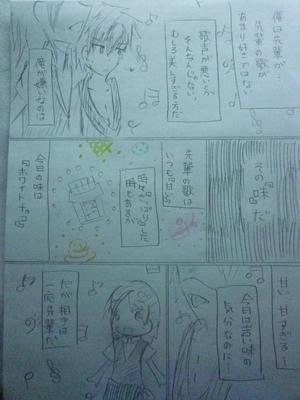 俺は先輩が…
先輩の歌が
あまり好きではない
歌声が悪いとか
そんなんじゃない
むしろ美しすぎる方だ
俺が嫌いなのは
その『味』だ
先輩の歌は
いつも『甘い』
時々『さっぱり』した
時もあるが
今日の味は
『ホワイトチョコ』
甘い、甘すぎる…
今日は苦い味の
気分なのに…
だが相手は
一応先輩だ